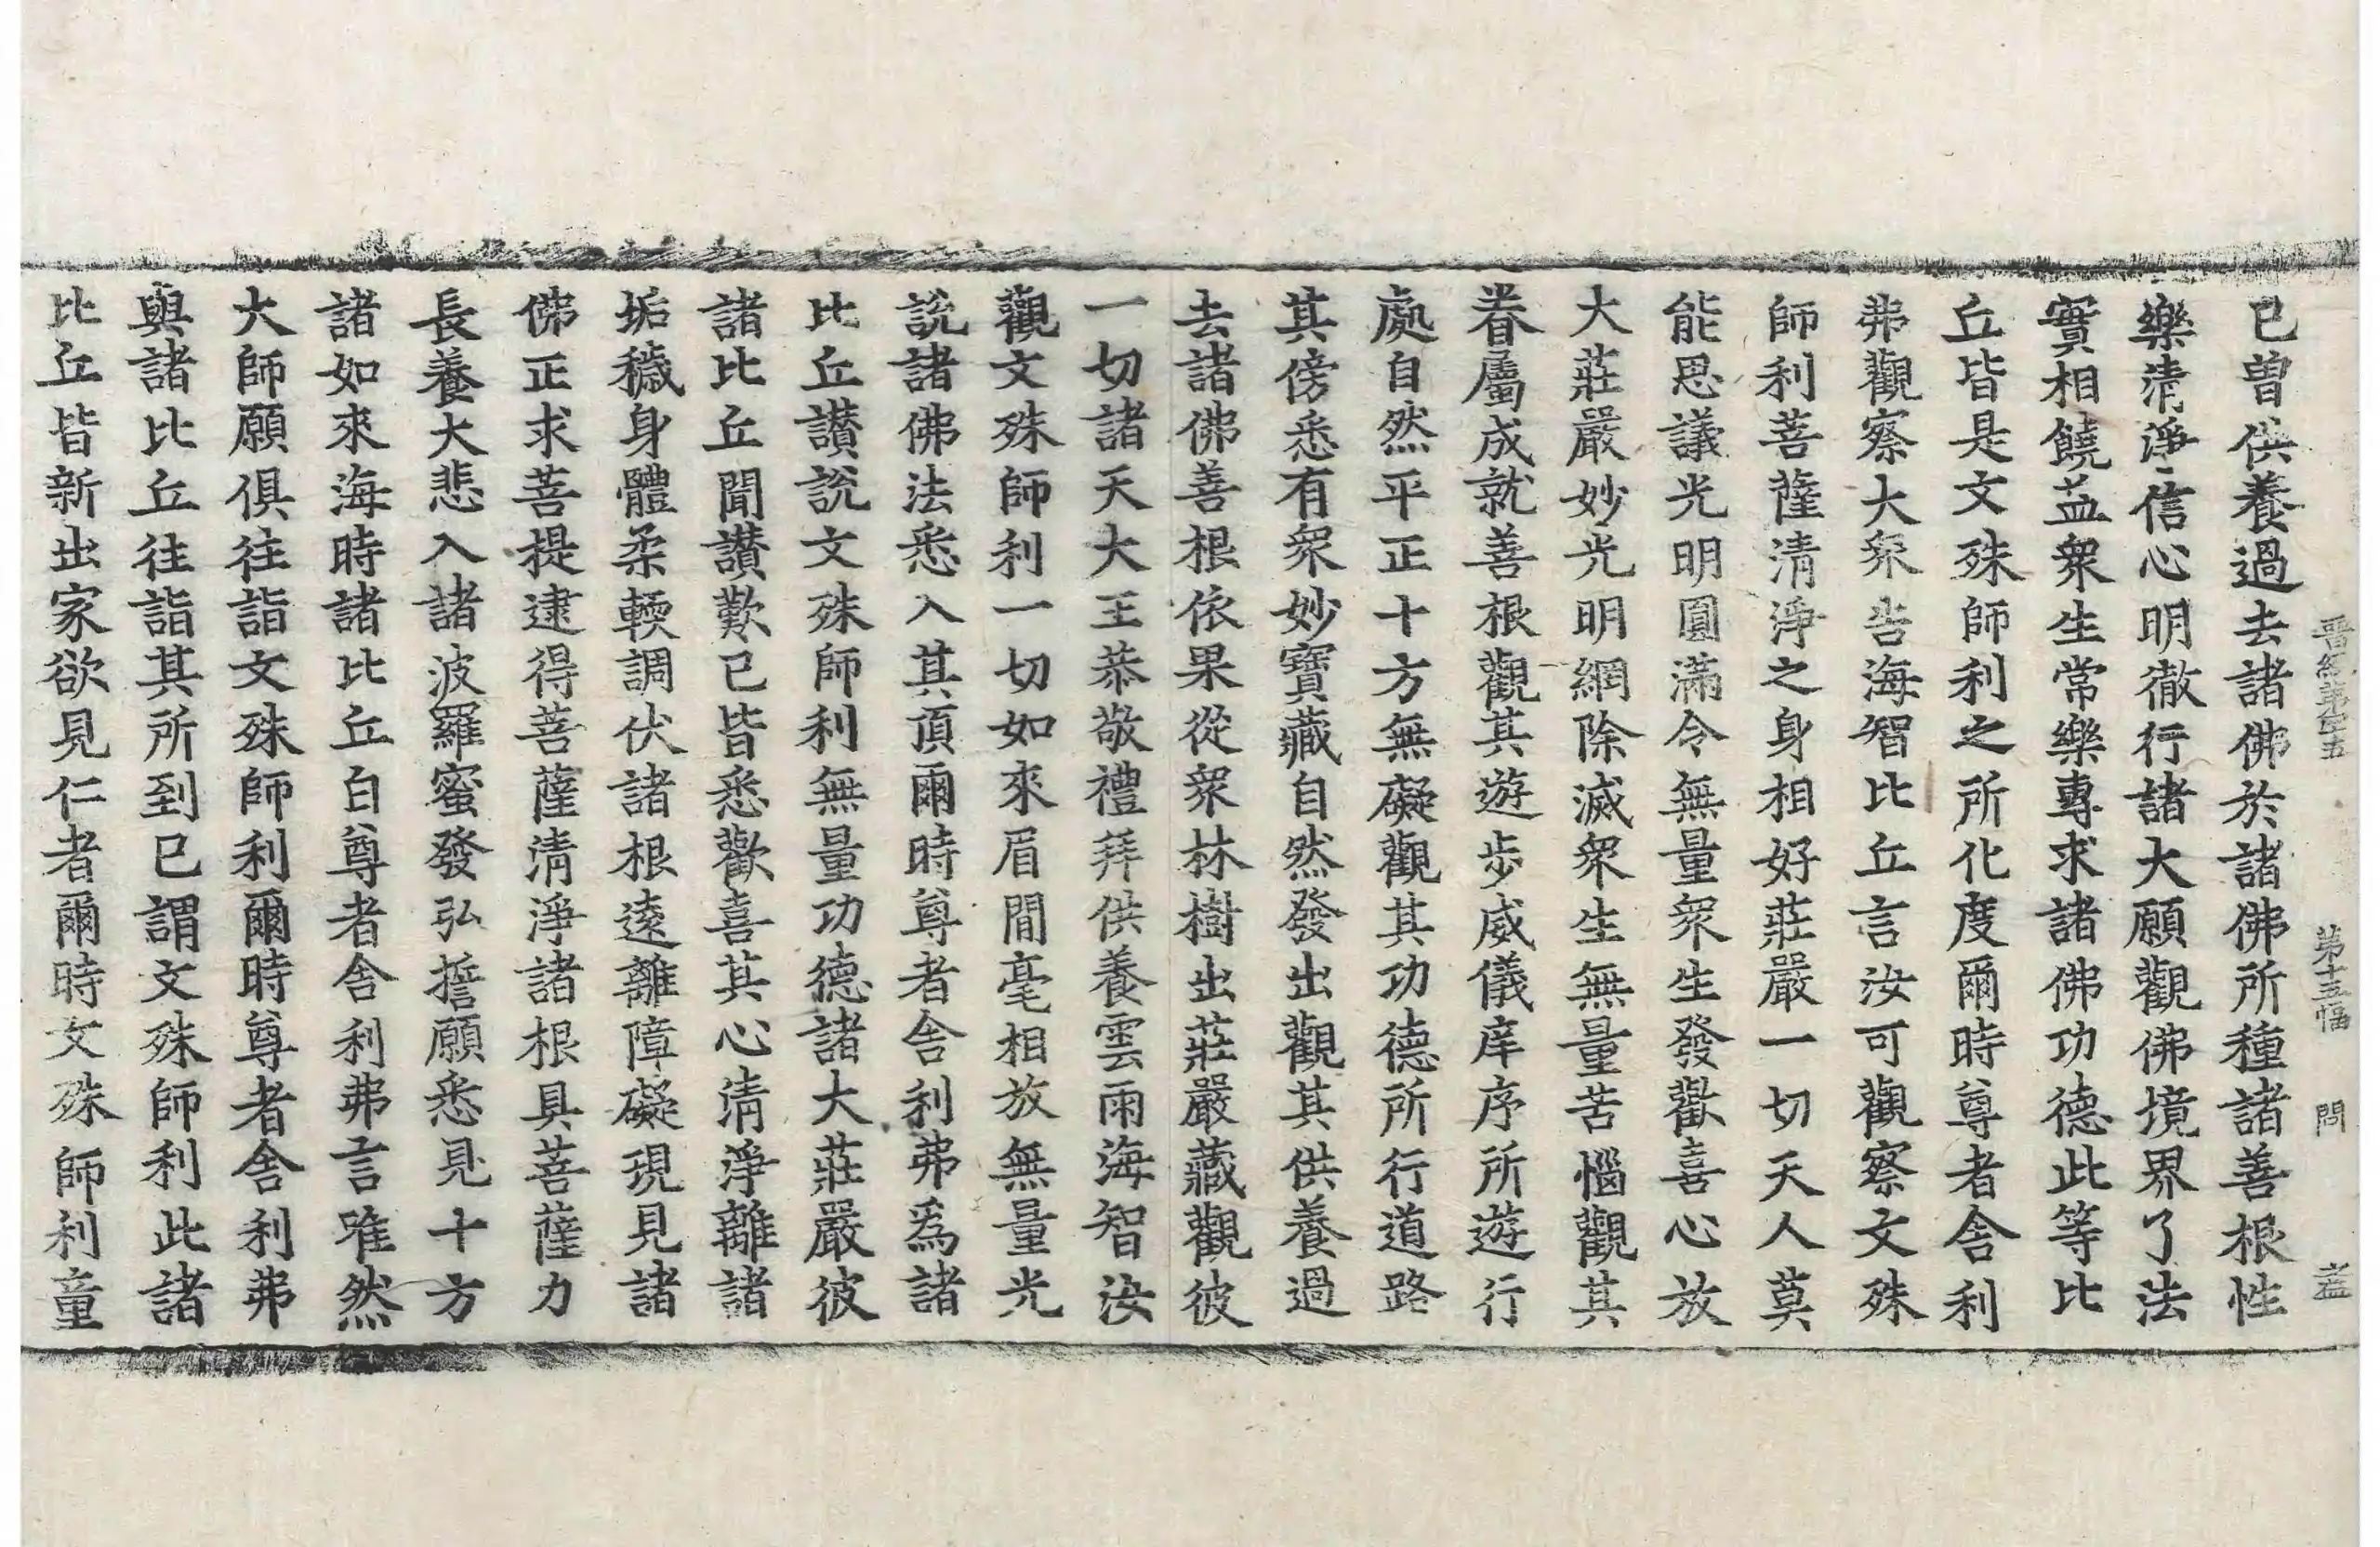 晋經第四十五 第十五幅 問 盖
已曽供養過去諸佛於諸佛所種諸善根性
樂清淨信心明徹行諸大願觀佛境界了法
實相饒益衆生常樂專求諸佛功德此等比
丘皆是文殊師利之所化度爾時尊者舎利
弗觀察大衆告海智比丘言汝可觀察文殊
師利菩薩清淨之身相好莊嚴一切天人莫
能思議光明圓滿令無量衆生發歡喜心放
大莊嚴妙光明網除滅衆生無量苦惱觀其
眷屬成就善根觀其遊步威儀庠序所遊行
處自然平正十方無礙觀其功德所行道路
其傍悉有衆妙寶藏自然發出觀其供養過
去諸佛善根依果從衆林樹出莊嚴藏觀彼
一切諸天大王恭敬禮拜供養雲雨海智汝
觀文殊師利一切如來眉間毫相放無量光
說諸佛法悉入其頂爾時尊者舎利弗爲諸
比丘讃說文殊師利無量功德諸大莊嚴彼
諸比丘聞讃歎已皆悉歡喜其心清淨離諸
垢穢身體柔輭調伏諸根遠離障礙現見諸
佛正求菩提逮得菩薩清淨諸根具菩薩力
長養大悲入諸波羅蜜發弘誓願悉見十方
諸如來海時諸比丘白尊者舎利弗言唯然
大師願俱往詣文殊師利爾時尊者舎利弗
與諸比丘往詣其所到已謂文殊師利此諸
比丘皆新出家欲見仁者爾時文殊師利童